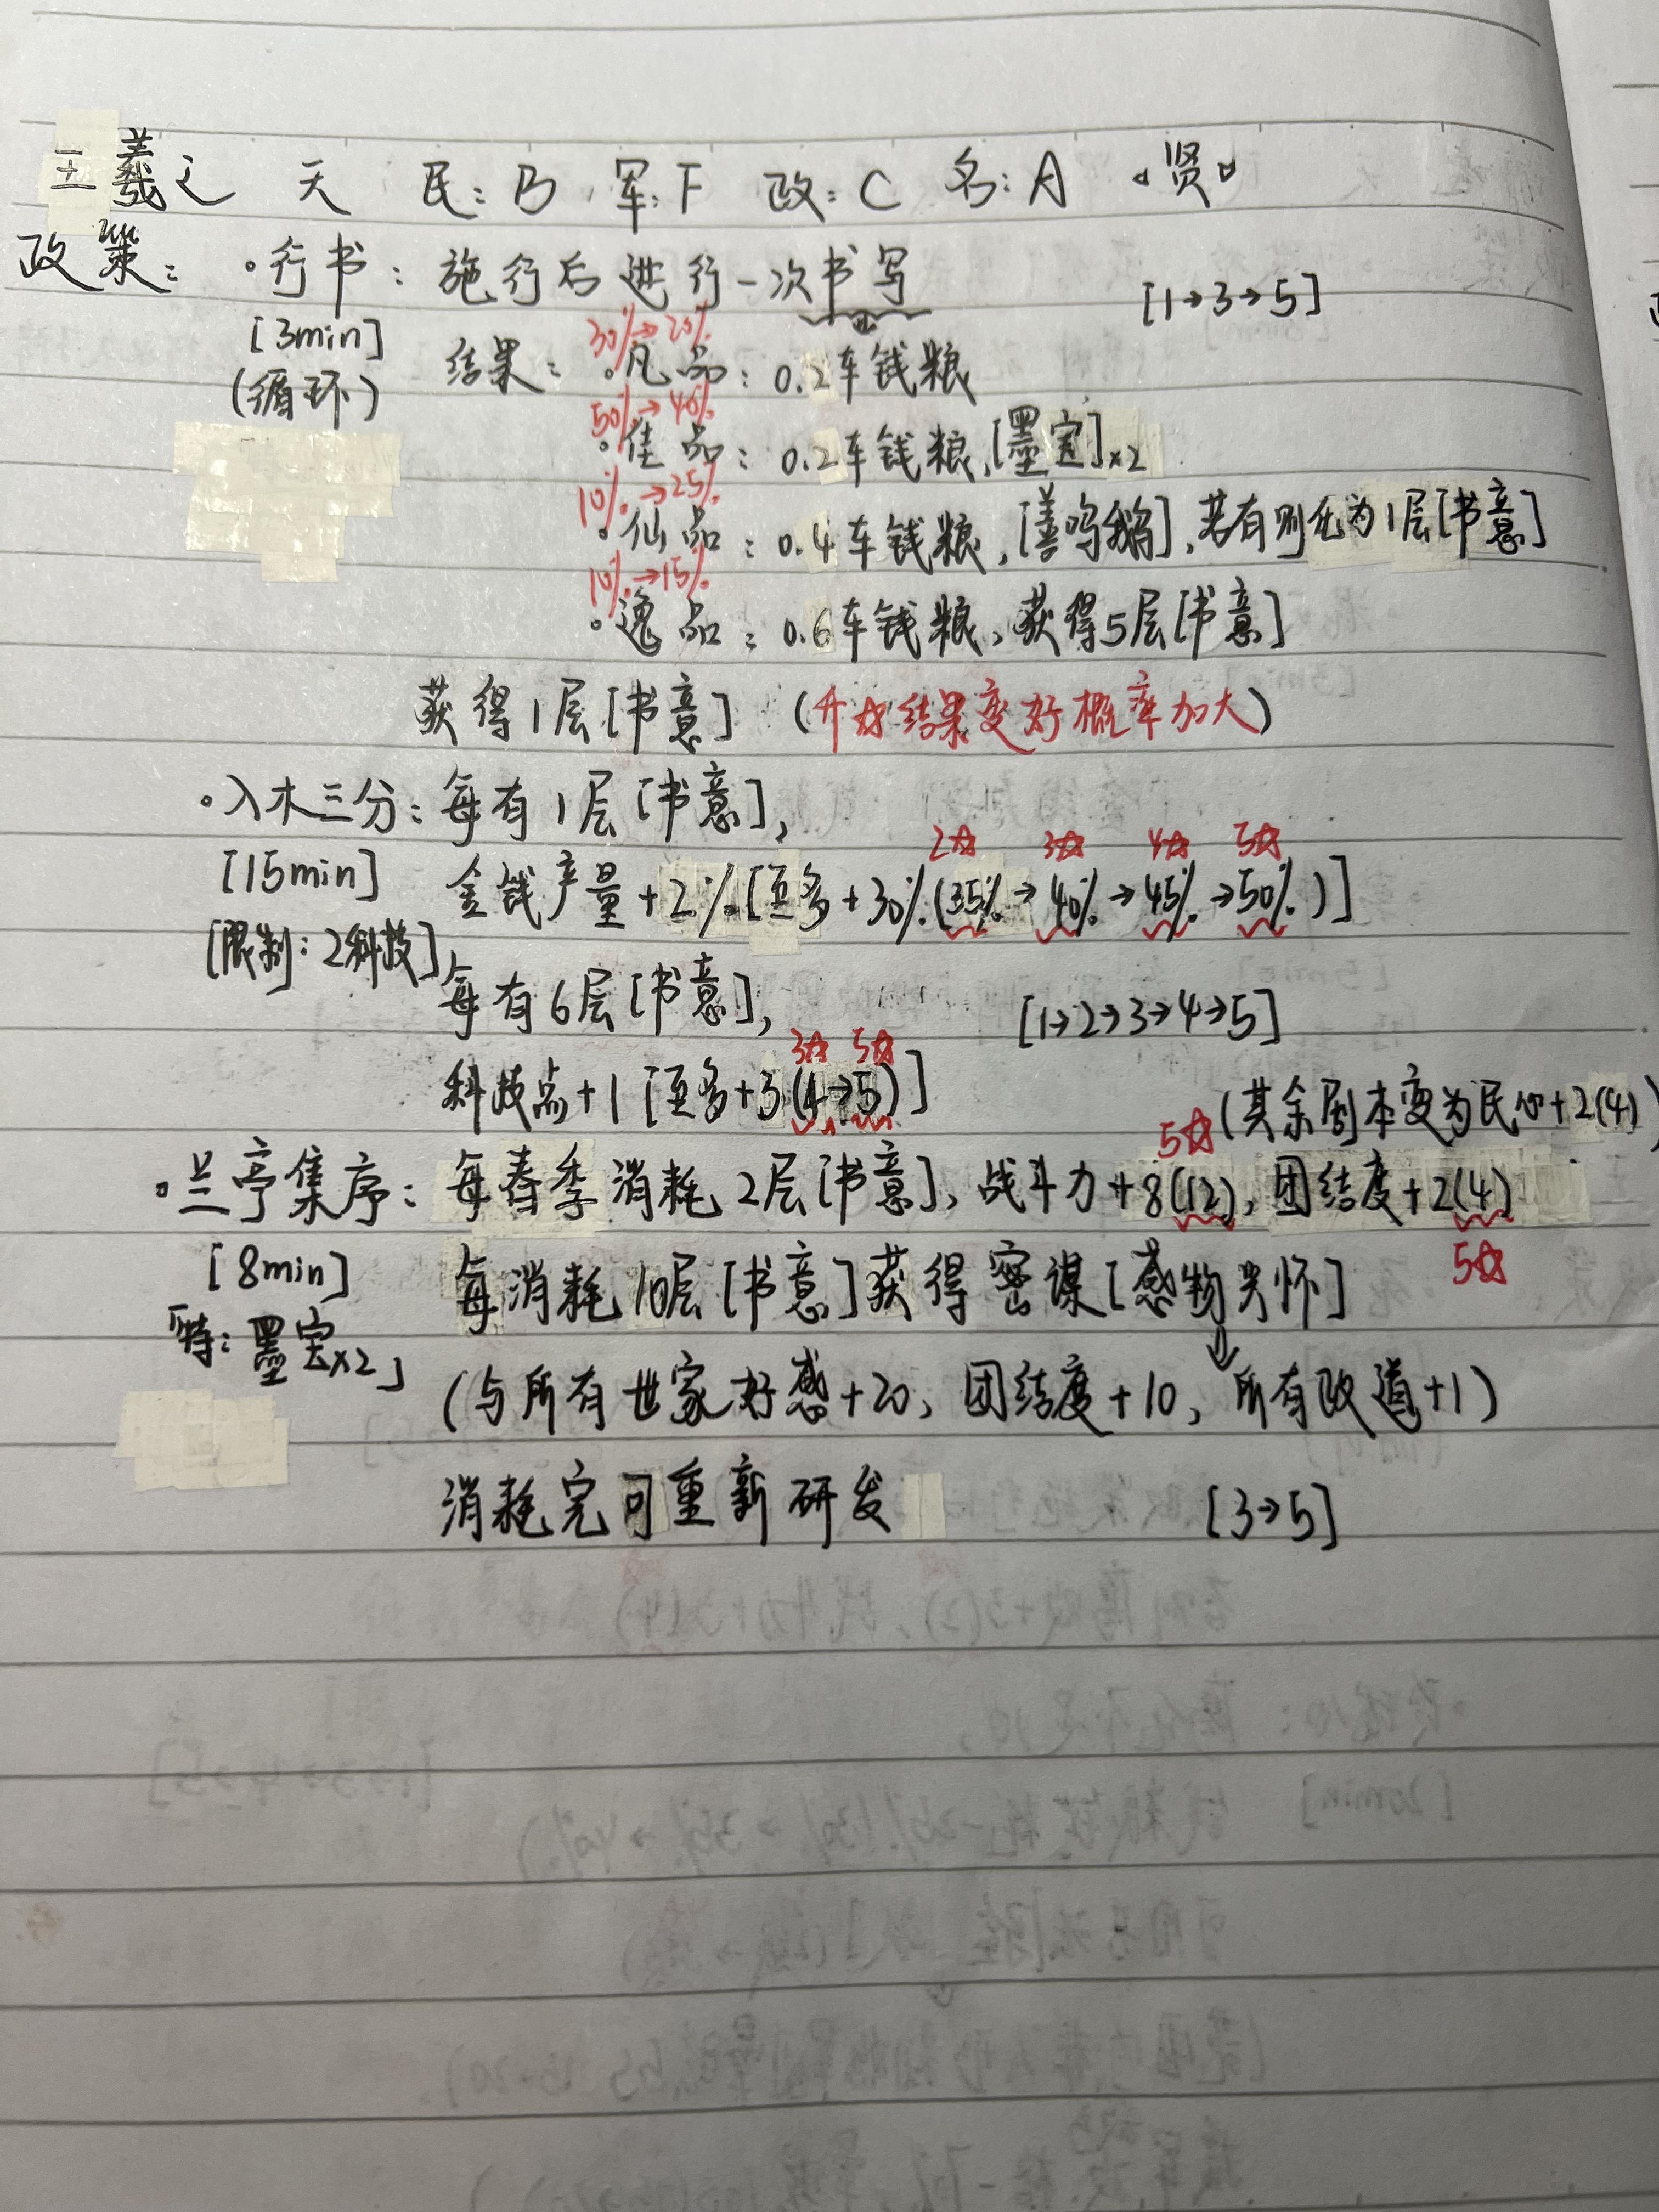 王羲之 天 民:B 军:F 政:C 名:A ·贤·
政策: ·行书: 施行后进行一次书写 [1→3→5]
[3min]
(循环)
30%→20%
结果: ·凡品: 0.2车钱粮
50%→40%
·佳品: 0.2车钱粮,[墨宝]×2
10%→25%
·仙品: 0.4车钱粮,[善鸣鹅],若有则化为1层[书意]
10%→15%
·逸品: 0.6车钱粮,获得5层[书意]
获得1层[书意] (升☆结果变好概率加大)
·入木三分: 每有1层[书意],
2☆ 3☆ 4☆ 5☆
[15min] 金钱产量+2%[至多+30%(35%→40%→45%→50%)]
[限制:2科技]
每有6层[书意], [1→2→3→4→5]
3☆ 5☆
科技点+1[至多+3(4→5)]
5☆ (其余剧本变为民心+2(4))
·兰亭集序: 每春季消耗2层[书意],战斗力+8(12),团结度+2(4)
5☆
[8min] 每消耗10层[书意]获得密谋[感物兴怀]
「特:墨宝×2」
↓
(与所有世家好感+20,团结度+10,所有政道+1)
消耗完可重新研发 [3→5]